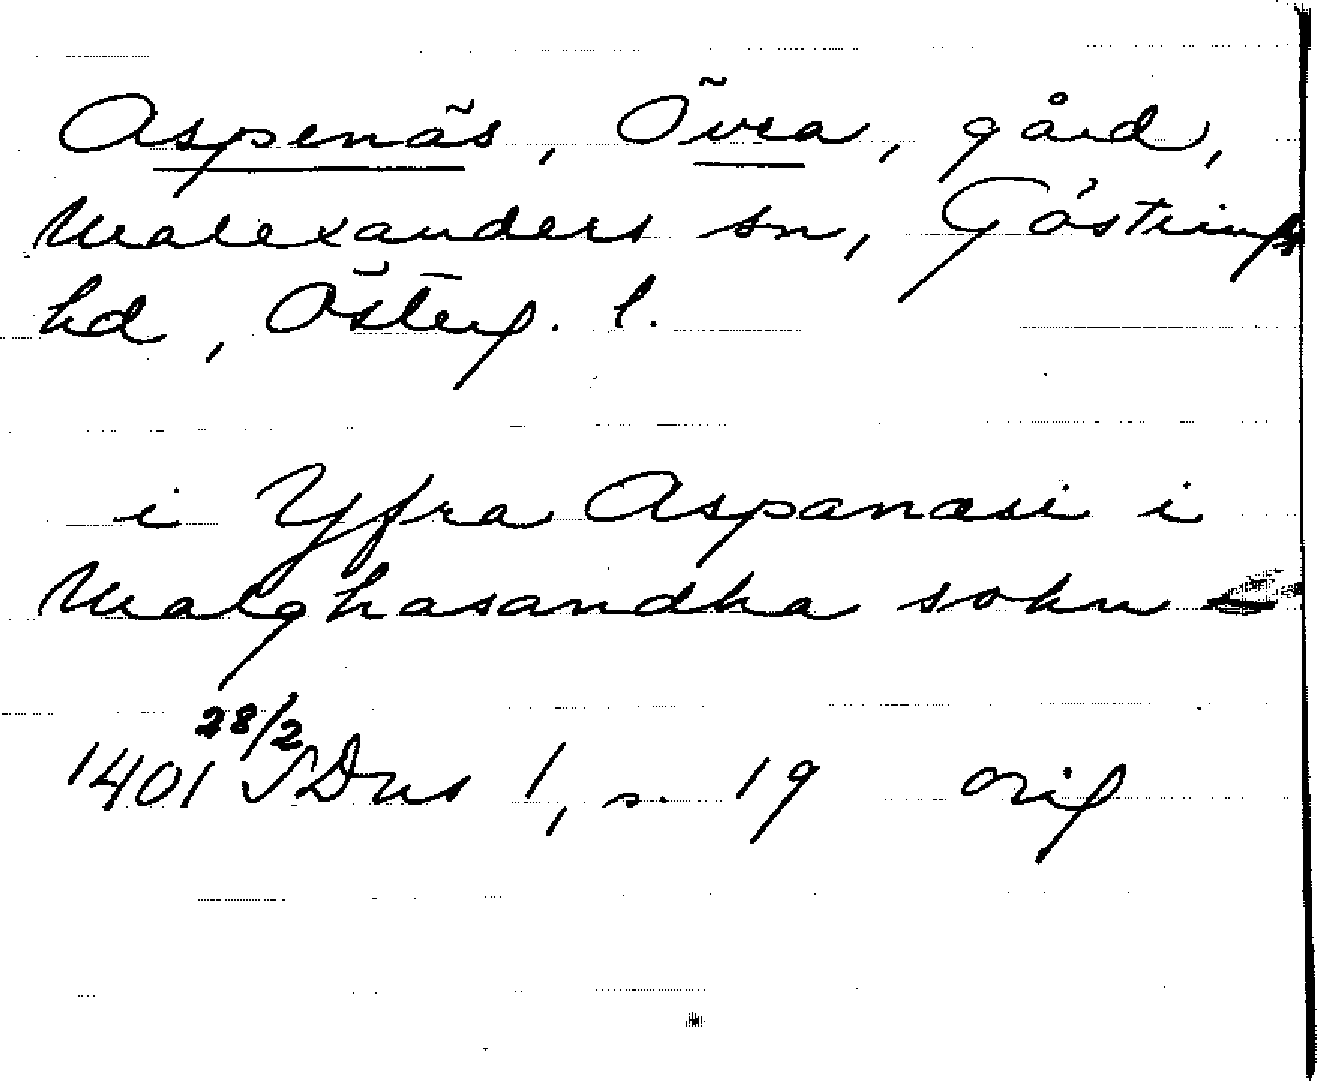 Aspenäs, Övra, gård,
Malexanders sn, Göstrings
hd, Österg. l.
i Yfra Aspanæsi i
Malghasandha sokn
1401 28/2 SDns 1, s. 19 orig